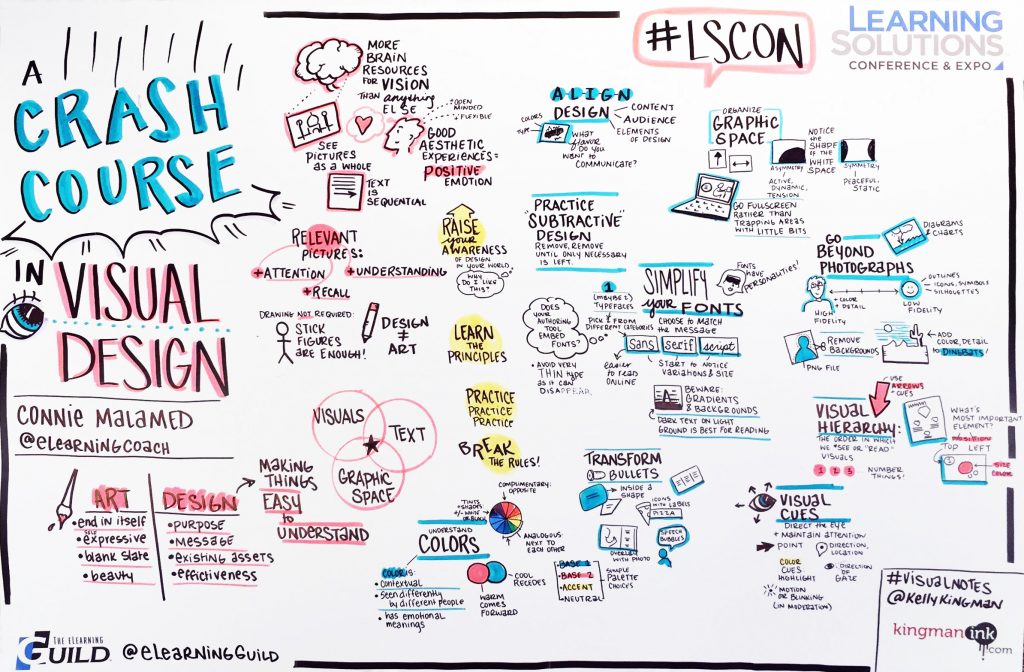 A
CRASH
COURSE
IN VISUAL
DESIGN
CONNIE MALAMED
@eLEARNINGCOACH
ART
•end in itself
•self expressive
•blank slate
•beauty
DESIGN
•PURPOSE
•MESSAGE
•existing assets
•effictiveness
MAKING
THINGS
EASY
to
UNDERSTAND
THE ELEARNING
GUILD
@eLEARNINGGUILD
MORE
BRAIN
RESOURCES
FOR VISION
THAN anything
ELSE
•OPEN
MINDED
•FLEXIBLE
SEE
PICTURES
AS A WHOLE
GOOD
AESTHETIC
EXPERIENCES=
POSITIVE
EMOTION
TEXT
IS
SEQUENTIAL
RELEVANT
PICTURES:
+ATTENTION
+UNDERSTANDING
+RECALL
DRAWING NOT REQUIRED:
STICK
FIGURES
ARE ENOUGH!
DESIGN
≠
ART
VISUALS
TEXT
GRAPHIC
SPACE
RAISE
your
AWARENESS
OF DESIGN
IN YOUR WORLD.
WHY
DO I LIKE
THIS?
LEARN
THE
PRINCIPLES
PRACTICE
PRACTICE
PRACTICE
BREAK
THE RULES!
UNDERSTAND
COLORS
TINTS
+SHADES
+/- WHITE
OR BLACK
COMPLIMENTARY:
OPPOSITE
ANALOGOUS:
NEXT TO
EACH OTHER
COLOR IS:
•contextual
•seen differently
by different people
•has emotional
meanings
COOL
RECEDES
WARM
COMES
FORWARD
BASE 1
BASE 2
ACCENT
NEUTRAL
SIMPLE
PALETTE
CHOICES
#LSCON
LEARNING
SOLUTIONS
CONFERENCE & EXPO
ALIGN
DESIGN
CONTENT
AUDIENCE
ELEMENTS
OF DESIGN
COLORS
TYPE
WHAT
flavor
DO YOU
WANT TO
COMMUNICATE?
PRACTICE
"SUBTRACTIVE"
DESIGN
REMOVE, REMOVE
UNTIL ONLY NECESSARY
IS LEFT.
ORGANIZE
GRAPHIC
SPACE
NOTICE
THE SHAPE
OF THE
WHITE
SPACE
ASYMMETRY
ACTIVE,
DYNAMIC,
TENSION
SYMMETRY
PEACEFUL,
STATIC
GO FULLSCREEN
RATHER THAN
TRAPPING AREAS
WITH LITTLE BITS
SIMPLIFY
your FONTS
FONTS
HAVE
PERSONALITIES!
DOES
YOUR
AUTHORING
TOOL
EMBED
FONTS?
•AVOID VERY
THIN TYPE
AS IT CAN
DISAPPEAR.
1
(MAYBE 2)
TYPEFACES
PICK 1 FROM
DIFFERENT CATEGORIES
CHOOSE TO MATCH
THE MESSAGE
sans
serif
script
easier
to read
ONLINE
START TO NOTICE
VARIATIONS & SIZE
BEWARE:
GRADIENTS
& BACKGROUNDS
DARK TEXT ON LIGHT
GROUND IS BEST FOR READING
TRANSFORM
BULLETS
INSIDE A
SHAPE
ICONS
WITH LABELS
PIZZA
OVERLAY
WITH PHOTO
SPEECH
BUBBLES
GO
BEYOND
PHOTOGRAPHS
DIAGRAMS
& CHARTS
OUTLINES
ICONS, SYMBOLS
SILHOUETTES
+COLOR
+DETAIL
HIGH
FIDELITY
LOW
FIDELITY
REMOVE
BACKGROUNDS
PNG FILE
ADD
COLOR, DETAIL
to DINGBATS!
VISUAL
HIERARCHY:
THE ORDER IN WHICH
WE "SEE OR "READ"
VISUALS
•USE
ARROWS
+ CUES
1 2 3
NUMBER
THINGS!
WHAT'S
MOST IMPORTANT
ELEMENT?
POSITION
TOP LEFT
SIZE
COLOR
VISUAL
CUES
DIRECT THE EYE
+ MAINTAIN ATTENTION
POINT
DIRECTION,
LOCATION
COLOR
CUES
HIGHLIGHT
DIRECTION
OF
GAZE
MOTION
OR BLINKING
(IN MODERATION)
#VISUALNOTES
@KELLYKINGMAN
kingman ink
.com